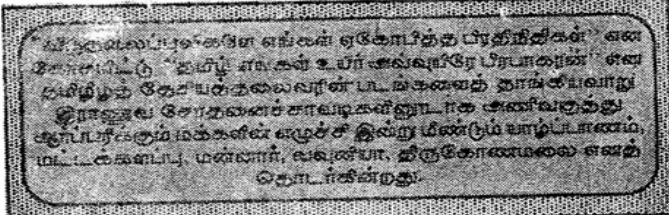 "விடுதலைப்புலிகளே எங்கள் ஏகோபித்த பிரதிநிதிகள்" என
கோசமிட்டு "தமிழ் எங்கள் உயிர் அவ்வுயிரே பிரபாகரன்" என
தமிழீழத் தேசியத்தலைவரின் படங்களைத் தாங்கியவாறு
இராணுவ சோதனைச்சாவடிகளினூடாக அணிவகுத்து
ஆர்ப்பரிக்கும் மக்களின் எழுச்சி இன்று மீண்டும் யாழ்ப்பாணம்,
மட்டக்களப்பு, மன்னார், வவுனியா, திருகோணமலை எனத்
தொடர்கின்றது.